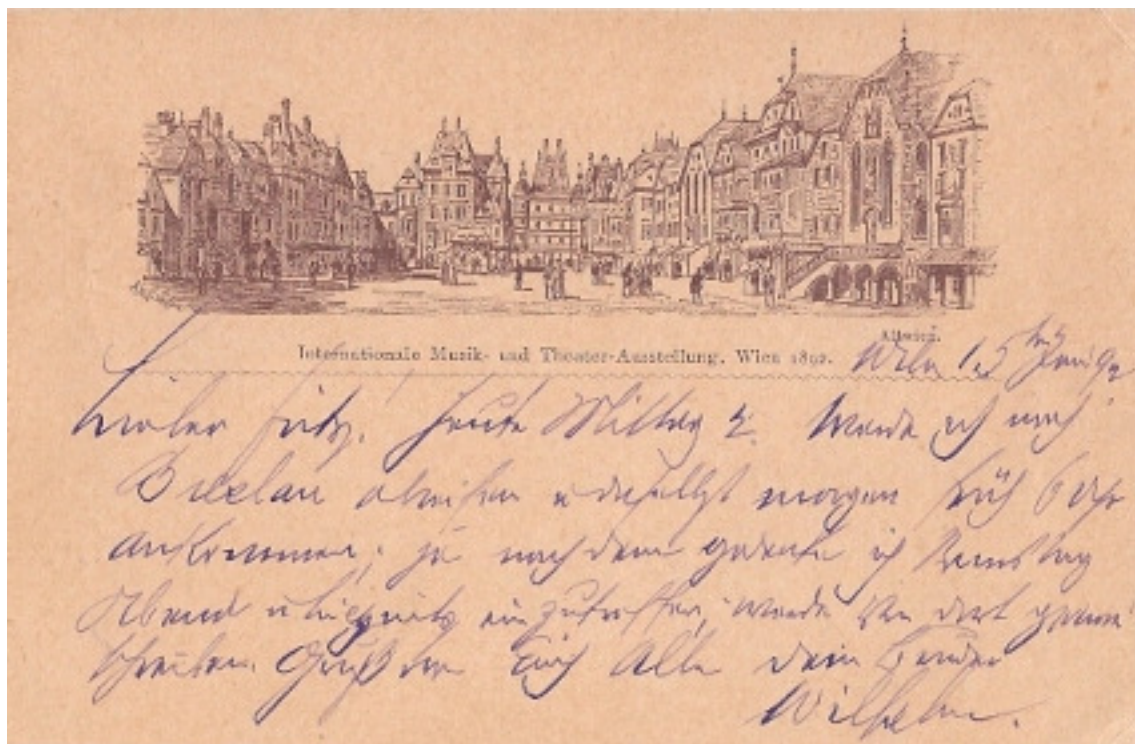 Altwien.
Internationale Musik- und Theater-Ausstellung. Wien 1892.
Wien 15 Juni 92
Lieber Fritz! Heute Mittag 2. werde ich nach
Breslau abreisen u daselbst morgen früh 6 Uhr
ankommen; je nach dem gedenke ich Samstag
Abend u Liegnitz einzutreffen, werde von dort genau
schreiben. Grüße an Euch Alle Dein Bruder
Wilhelm.